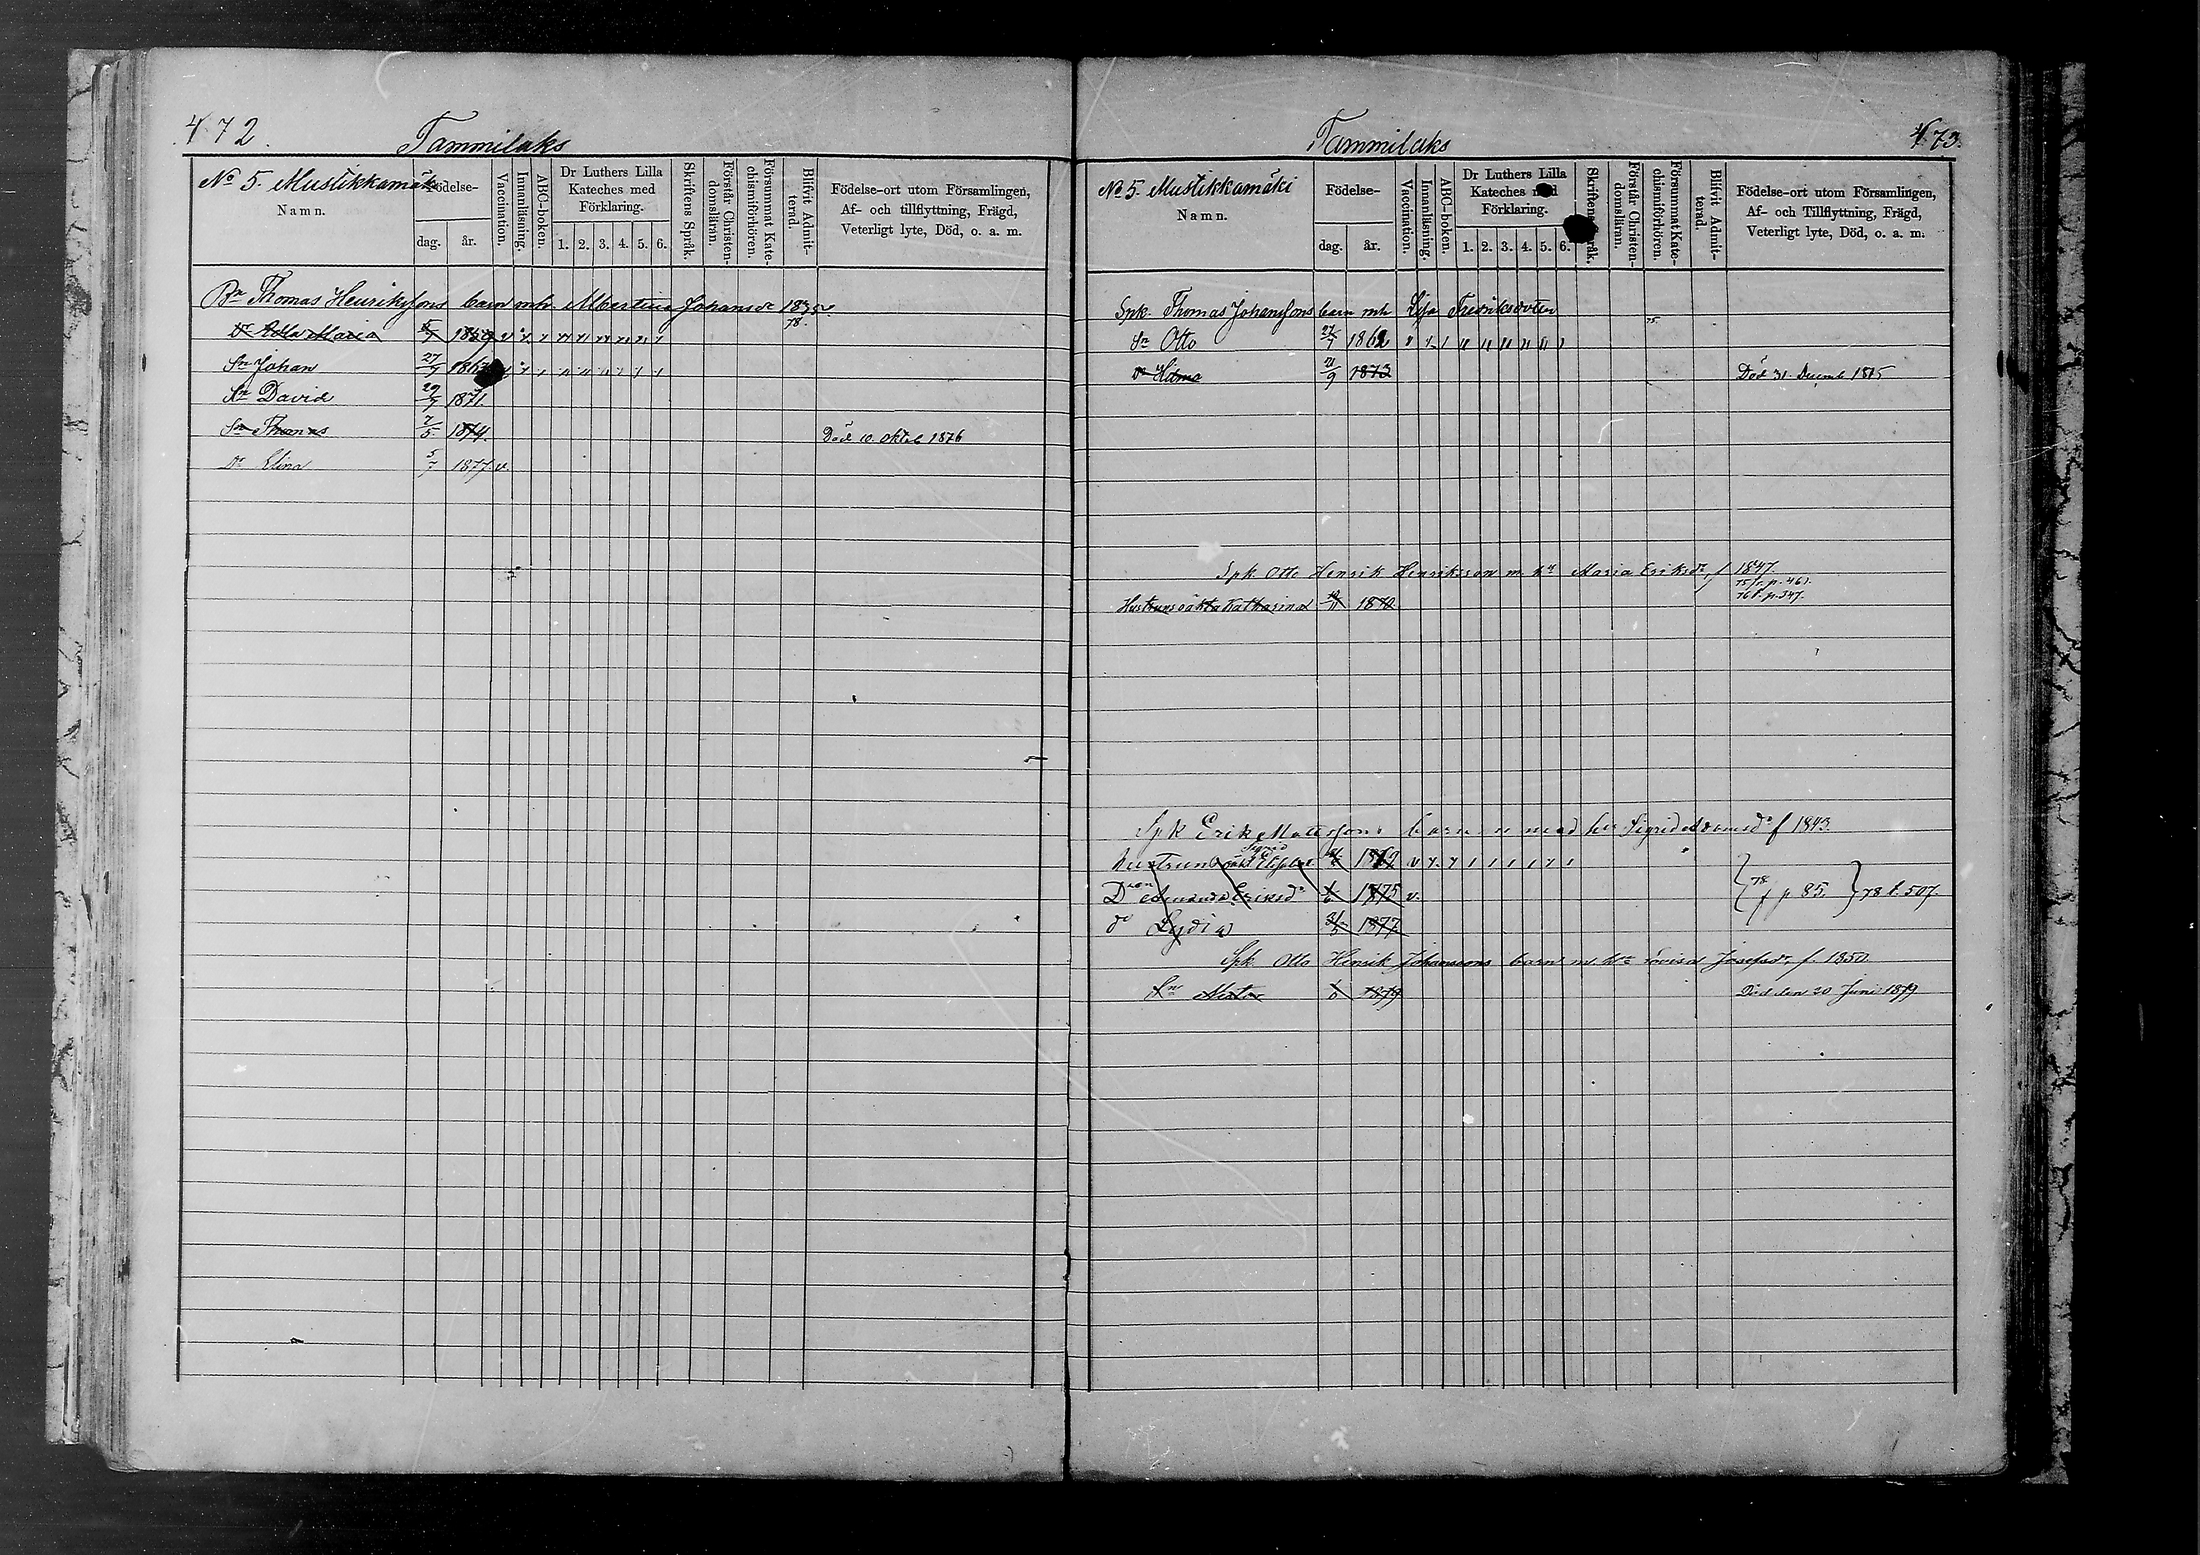 472.
Tammilaks
No 5. Mustikkamäki
Namn.
Födelse-
dag. år.
Vaccination.
Innanläsning.
ABC-boken.
Dr Luthers Lilla
Kateches med
Förklaring.
1. 2. 3. 4. 5. 6.
Skriftens Språk.
Förstår Christen-
domsläran.
Försummat Kate-
chismiförhören.
Blifvit Admit-
terad.
Födelse-ort utom Församlingen,
Af- och tillflyttning, Frägd,
Veterligt lyte, Död, o. a. m.
Bn Thomas Henrikssons barn mh Albertina Johansdr 1835
78.
Dr Adla Maria 1859 v
Sn Johan 27/9
Sn David 29/7 1871.
Sn Thomas 7/5 1874 Död 10 Oktob 1876
Dr Elina 5/7 1877 v.
473.
Tammilaks
No 5. Mustikkamäki
Namn.
Födelse-
dag. år.
Vaccination.
Innanläsning.
ABC-boken.
Dr Luthers Lilla
Kateches med
Förklaring.
1. 2. 3. 4. 5. 6.
Skriftens Språk.
Förstår Christen-
domsläran.
Försummat Kate-
chismiförhören.
Blifvit Admit-
terad.
Födelse-ort utom Församlingen,
Af- och Tillflyttning, Frägd,
Veterligt lyte, Död, o. a. m.
Spk. Thomas Johanssons barn mh Lisa Fredriksdotter
75.
Sn Otto 27/7 1862 v
Dr Hilma 21/9 1873 Död 31 Decemb 1875
Spk. Otto Henrik Henriksson m. hu Maria Eriksdr f 1847.
75 fr. p. 461.
76 t. p. 347.
Hustruns oäkta Katharina 1870
Spk Erik Mattssons barn med hu Sigrid Adamsdr f 1843.
Hustruns oäkta 1862 v
Dren Amanda Eriksdr 1875 v. 78 f p 85. 78 t. 507.
dr Lydia 1877
Spk Otto Henrik Johanssons barn m. hu Lovisa Josefsdr f. 1850.
Sn 1879 Död den 20 Juni 1879